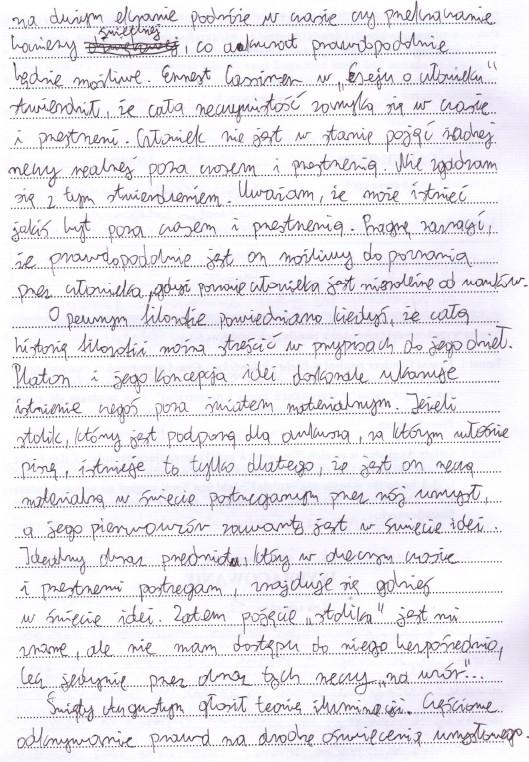 na dużym ekranie podróże w czasie czy przełamanie
bariery świetlnej, co akurat prawdopodobnie
będzie możliwe. Ernest Cassirer w „Eseju o człowieku"
stwierdził, że cała rzeczywistość zamyka się w czasie
i przestrzeni. Człowiek nie jest w stanie pojąć żadnej
rzeczy realnej poza czasem i przestrzenią. Nie zgadzam
się z tym stwierdzeniem. Uważam, że może istnieć
jakiś byt poza czasem i przestrzenią. Pragnę zaznaczyć,
że prawdopodobnie jest on możliwy do poznania
przez człowieka, gdyż poznanie człowieka jest niezależne od warunków.
O pewnym filozofie powiedziano kiedyś, że całą
historię filozofii można streścić w przypisach do jego dzieł.
Platon i jego koncepcja idei doskonale ukazuje
istnienie czegoś poza światem materialnym. Jeżeli
stolik, który jest podporą dla arkusza, na którym właśnie
piszę, istnieje to tylko dlatego, że jest on rzeczą
materialną w świecie postrzeganym przez mój umysł,
a jego pierwowzór zawarty jest w świecie idei.
Idealny obraz przedmiotu, który w obecnym czasie
i przestrzeni postrzegam, znajduje się gdzieś
w świecie idei. Zatem pojęcie „stolika" jest mi
znane, ale nie mam dostępu do niego bezpośrednio,
lecz jedynie przez obraz tych rzeczy „na wzór"...
Święty Augustyn głosił teorię iluminacji. Częściowe
odkrywanie prawd na drodze oświecenia umysłowego.